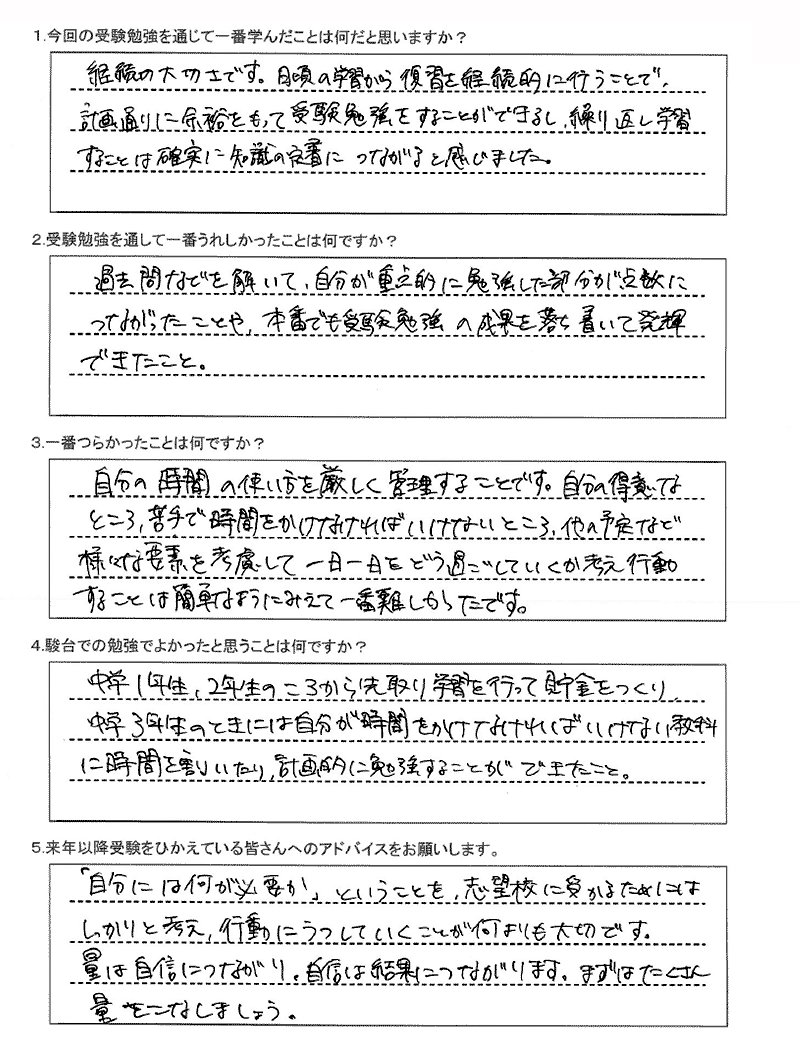 1.今回の受験勉強を通じて一番学んだことは何だと思いますか？
継続の大切さです。日頃の学習から復習を継続的に行うことで、
計画通りに余裕をもって受験勉強をすることができるし、繰り返し学習
することは確実に知識の定着につながると感じました。
2.受験勉強を通して一番うれしかったことは何ですか？
過去問などを解いて、自分が重点的に勉強した部分が点数に
つながったことや、本番でも受験勉強の成果を落ち着いて発揮
できたこと。
3.一番つらかったことは何ですか？
自分の時間の使い方を厳しく管理することです。自分の得意な
ところ、苦手で時間をかけなければいけないところ、他の予定など
様々な要素を考慮して一日一日をどう過ごしていくか考え行動
することは簡単なようにみえて一番難しかったです。
4.駿台での勉強でよかったと思うことは何ですか？
中学1年生、2年生のころから先取り学習を行って貯金をつくり、
中学3年生のときには自分が時間をかけてなければいけない教科
に時間を割いたり、計画的に勉強することができたこと。
5.来年以降受験をひかえている皆さんへのアドバイスをお願いします。
「自分には何が必要か」ということを、志望校に受かるためには
しっかりと考え、行動にうつしていくことが何よりも大切です。
量は自信につながり、自信は結果につながります。まずはたくさん
量をこなしましょう。